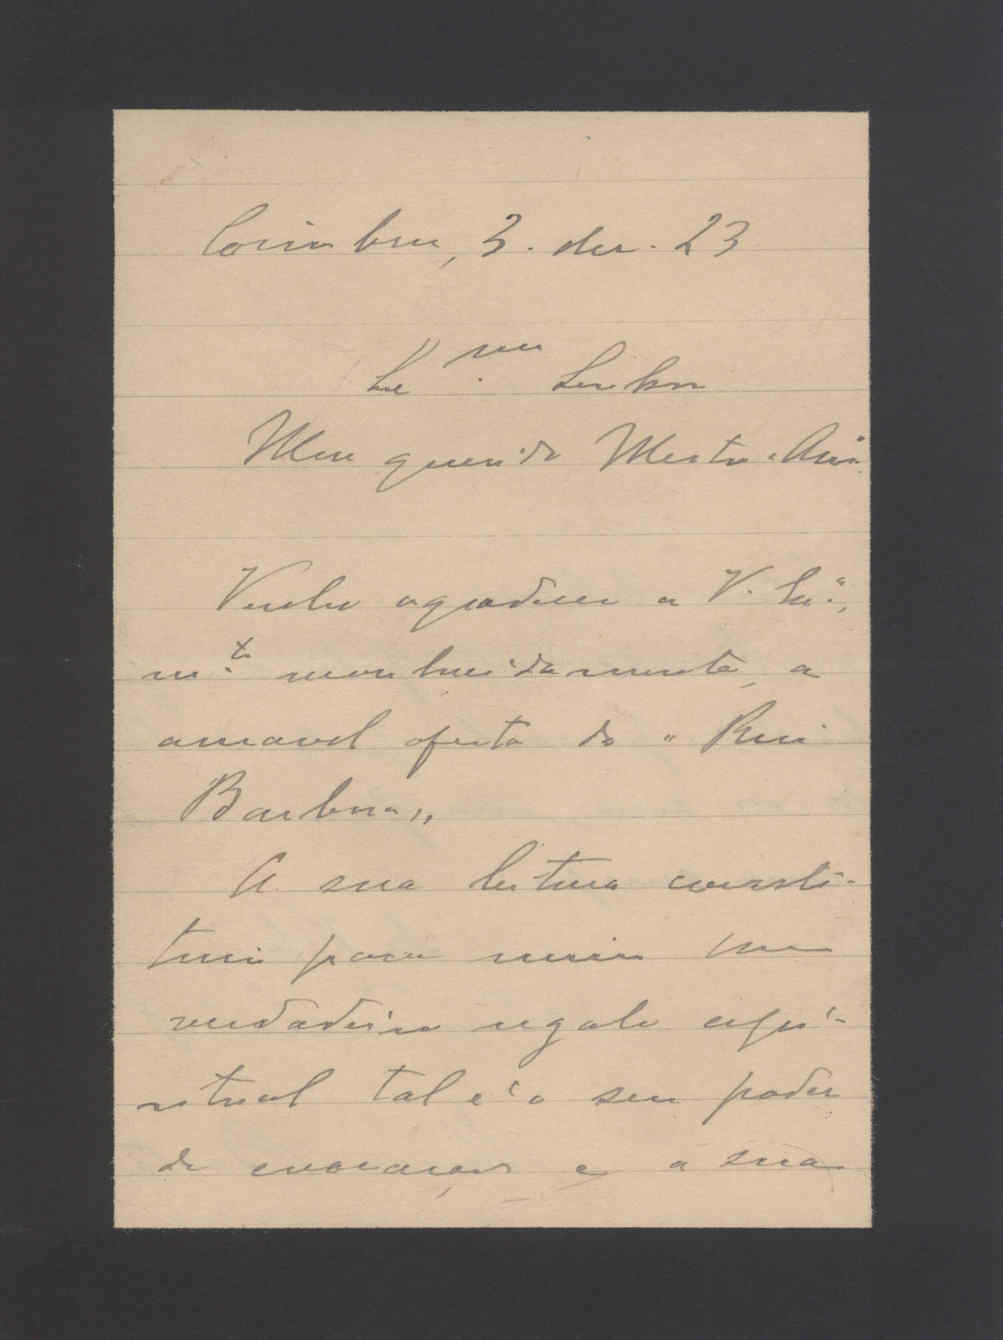 Coimbra, 3. dez. 23
Ex.mo Senhor
Meu querido Mestre e Am.o
Venho agradecer a V. Ex.a,
m.to reconhecidamente, a
amavel oferta do "Rui
Barbosa"
A sua leitura consti-
tuiu para mim um
verdadeiro regalo espi-
ritual tal é o seu poder
de evocação e a sua